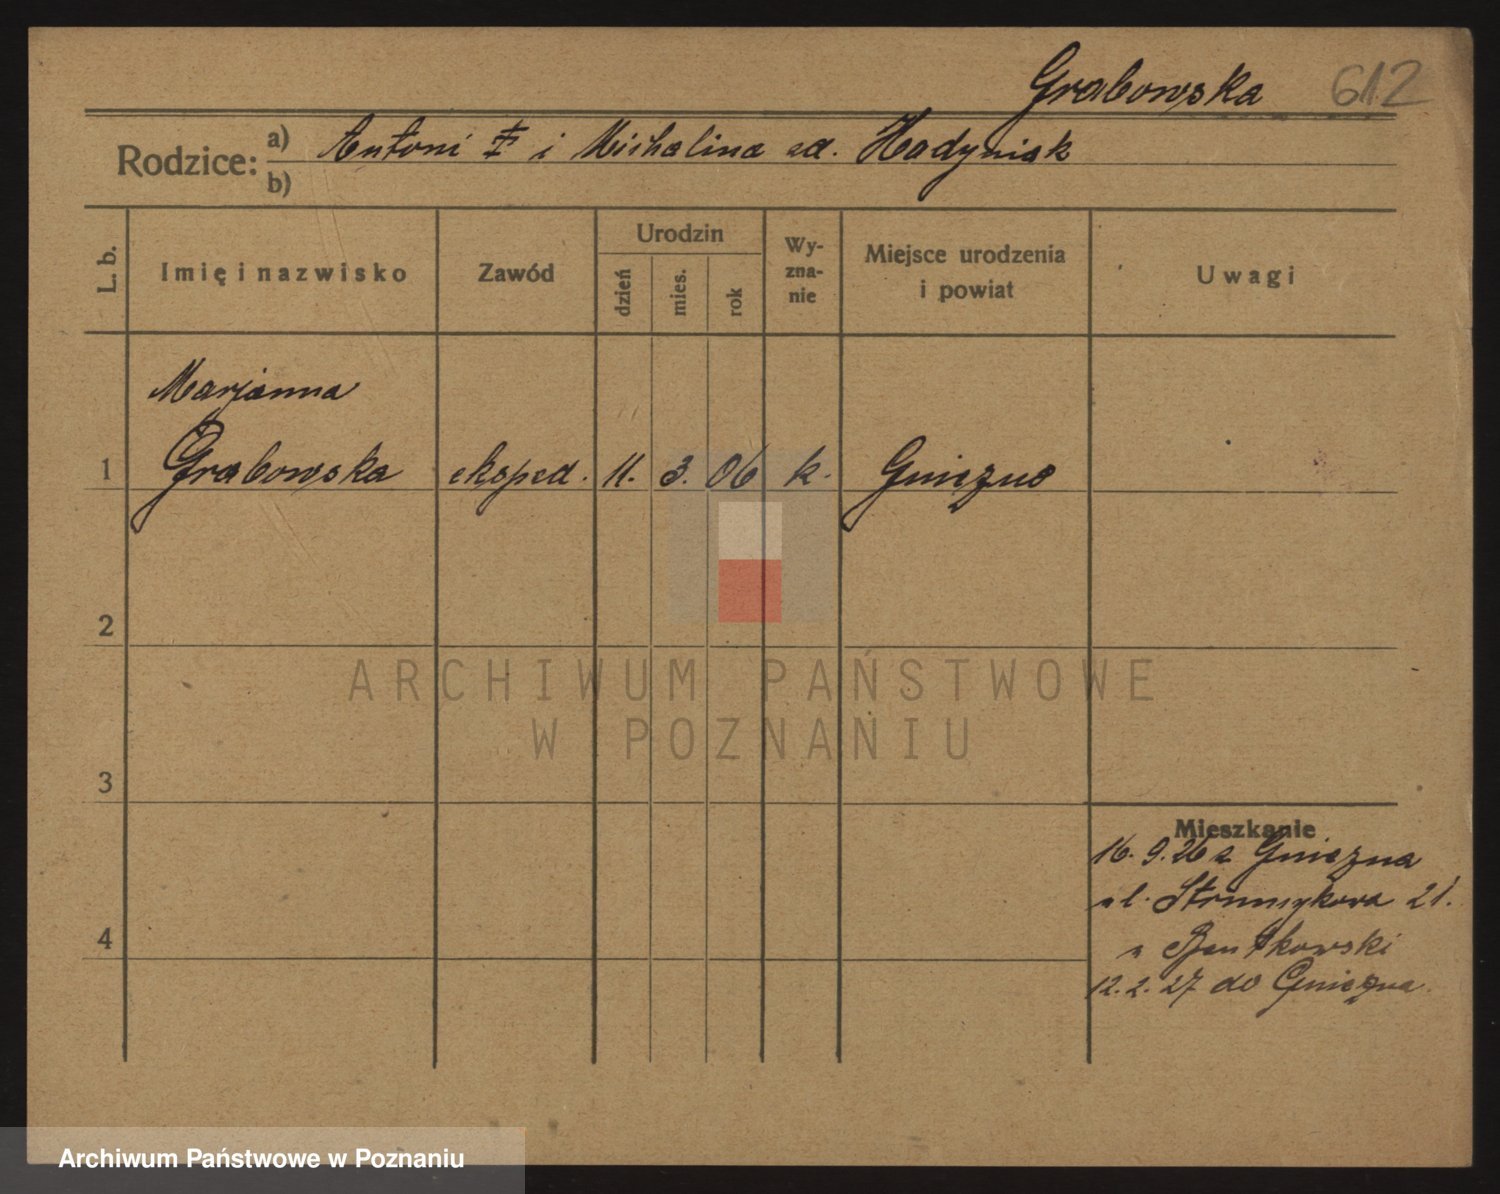 Grabowska 612
Rodzice: a) Antoni ‡ i Michalina zd. Hadyniak
b)
L. b.
Imię i nazwisko
Zawód
Urodzin
dzień
mies.
rok
Wy-
zna-
nie
Miejsce urodzenia
i powiat
Uwagi
Marjanna
1 Grabowska eksped. 11. 3. 06 k. Gniezno
2
ARCHIWUM PAŃSTWOWE
W POZNANIU
3
Mieszkanie
16. 9. 26 z Gniezna
ul. Strumykowa 21.
4
u
12. 2. 27 do Gniezna.
Archiwum Państwowe w Poznaniu